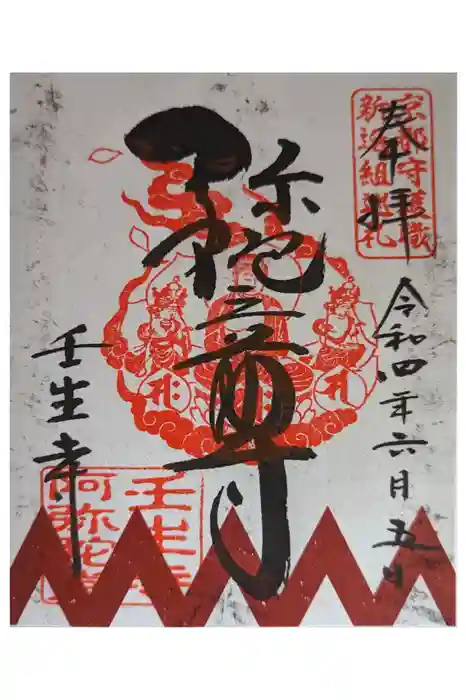 奉拝
京都守護職
新選組巡礼
令和四年六月五日
弥陀三尊
壬生寺
壬生寺
阿弥陀堂